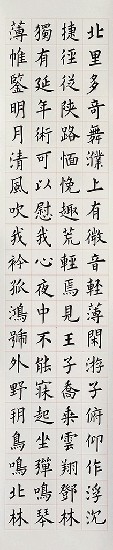 北里多奇舞濮上有微音輕薄閑游子俯仰作浮沉
捷徑從陜路愐悗趣荒輕焉見王子喬乘雲翔鄧林
獨有延年術可以慰我心夜中不能寐起坐彈鳴琴
薄帷鑒明月清風吹我衿孤鴻號外野玥鳥鳴北林